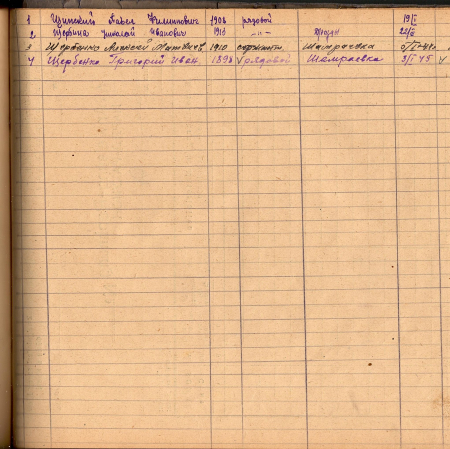 1 Щитский Павел Климкович 1906 рядовой 19/I
2 Щербина Николай Иванович 1913 -"- 22/I
3 Щербанно Алексей Матвиев 1910 Шатрачвка
4 Щербенко Григорий Иван. 1898 рядовой Шамраевка 3/I 45